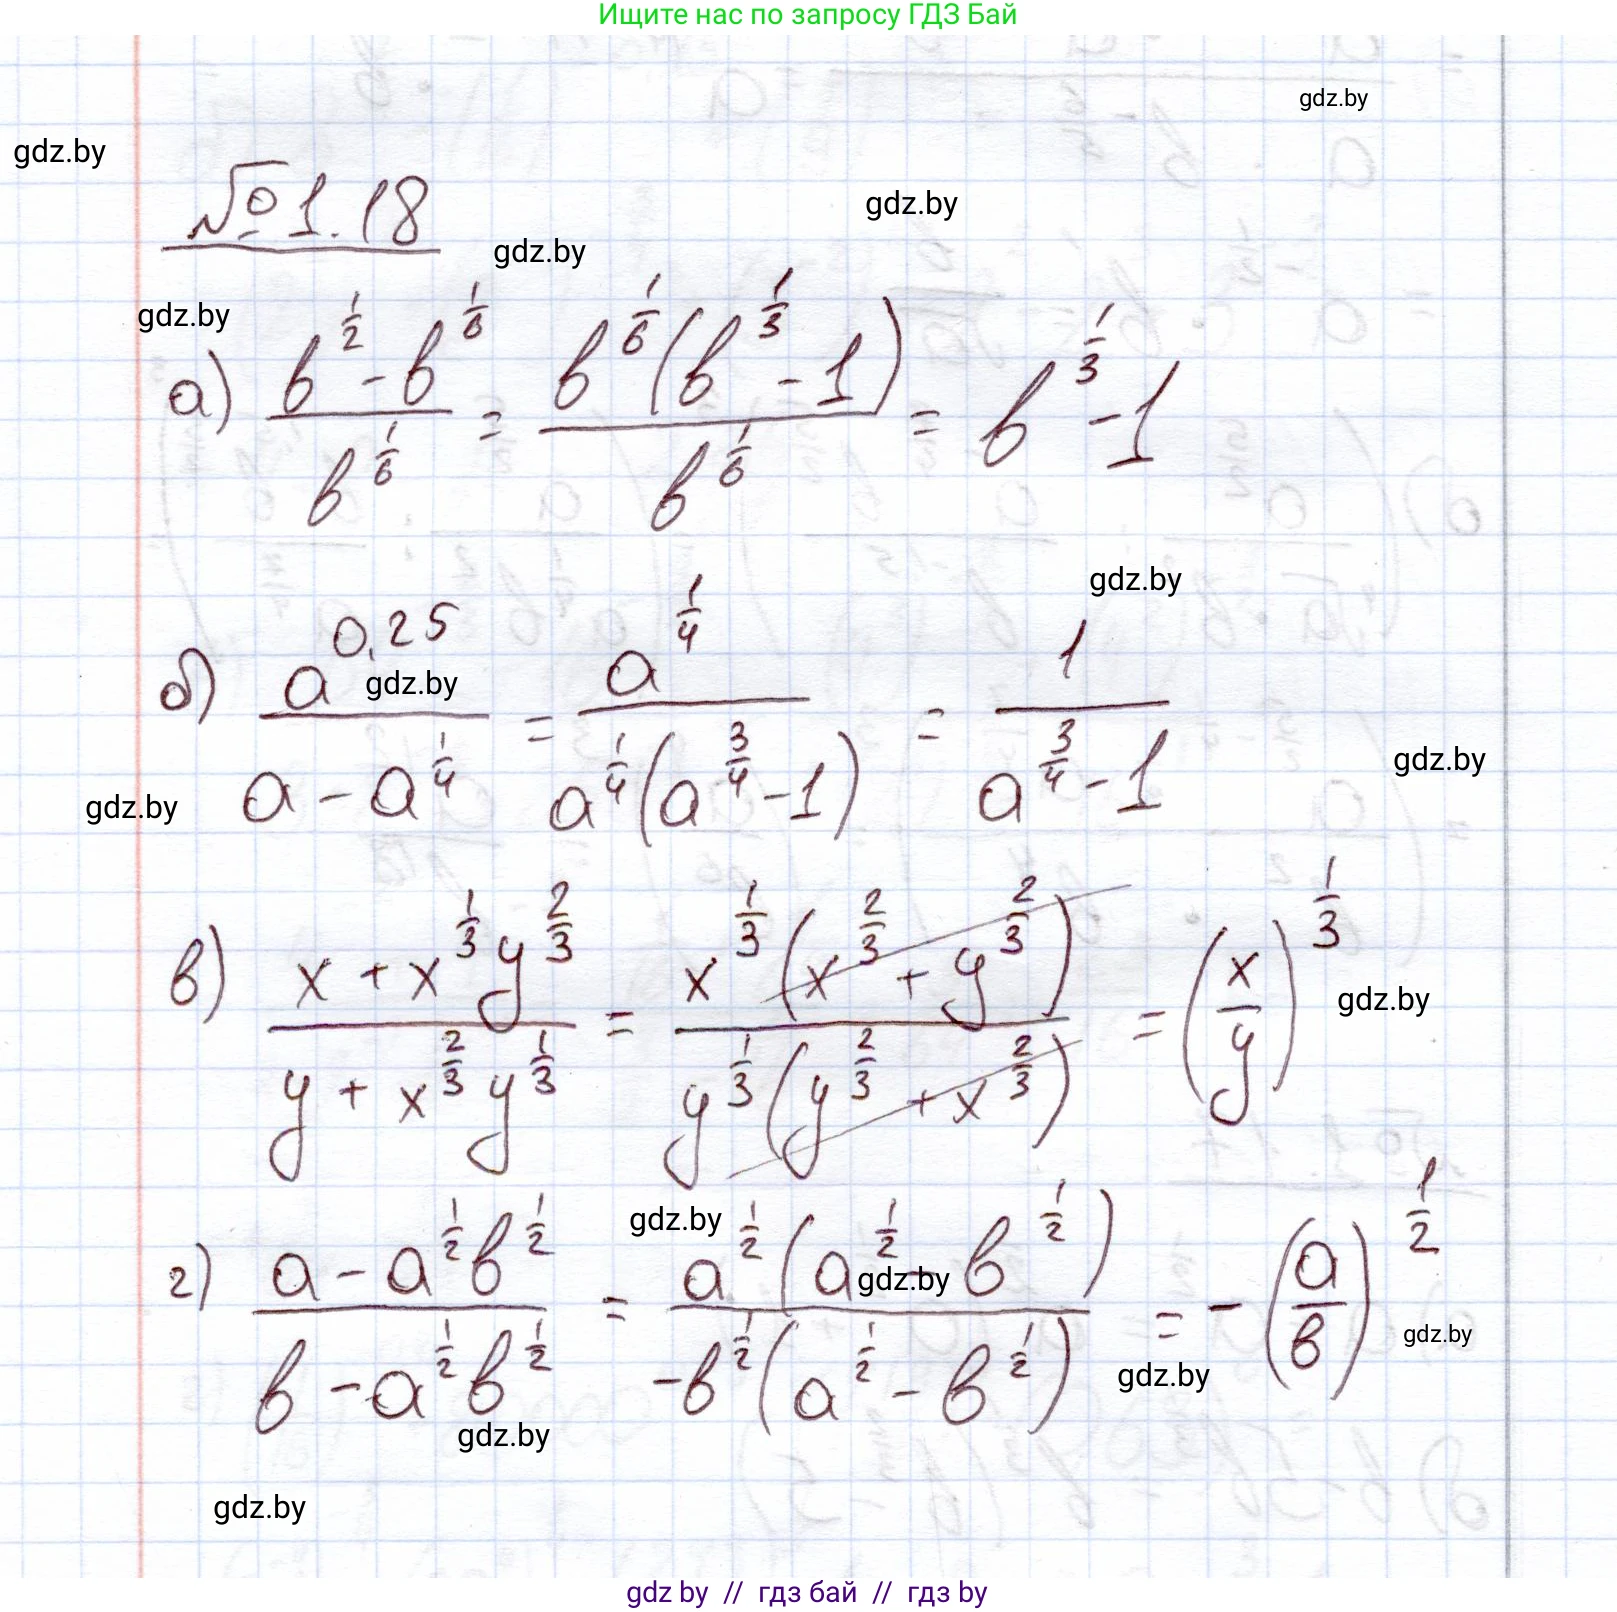 Ищите нас по запросу ГДЗ Бай
gdz.by
gdz.by
gdz.by
№ 1.18
gdz.by
gdz.by
а) (b^(1/2) - b^(1/6))/b^(1/6) = (b^(1/6)(b^(1/3) - 1))/b^(1/6) = b^(1/3) - 1
gdz.by
б) a^(0,25)/(a - a^(1/4)) = a^(1/4)/(a^(1/4)(a^(3/4) - 1)) = 1/(a^(3/4) - 1)
gdz.by
gdz.by
gdz.by
в) (x + x^(1/3) y^(2/3))/(y + x^(2/3) y^(1/3)) = (x^(1/3)(x^(2/3) + y^(2/3)))/(y^(1/3)(y^(2/3) + x^(2/3))) = (x/y)^(1/3)
gdz.by
gdz.by
г) (a - a^(1/2) b^(1/2))/(b - a^(1/2) b^(1/2)) = (a^(1/2)(a^(1/2) - b^(1/2)))/(-b^(1/2)(a^(1/2) - b^(1/2))) = -(a/b)^(1/2)
gdz.by
gdz.by
gdz.by
gdz.by
gdz.by
gdz by // гдз бай // гдз by